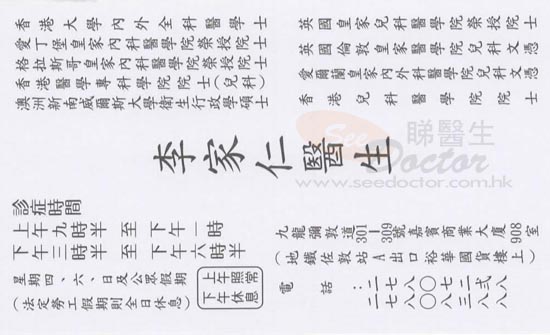 香港大學內外全科醫學士
愛丁堡皇家內科醫學院榮授院士
格拉斯哥皇家內科醫學院榮授院士
香港醫學專科學院院士(兒科)
澳洲新南威爾斯大學衛生行政學碩士
英國皇家兒科醫學院榮授院士
英國倫敦皇家醫學院兒科文憑
愛爾蘭皇家內外科醫學院兒科文憑
香港兒科醫學院院士
李家仁醫生
See Doctor 睇醫生
www.seedoctor.com.hk
診症時間
上午九時半至下午一時
下午三時半至下午六時半
星期四、六、日及公眾假期
(法定勞工假期則全日休息)
上午照常
下午休息
九龍彌敦道301-309號嘉賓商業大廈908室
(地鐵佐敦站A出口裕華國貨樓上)
電話: